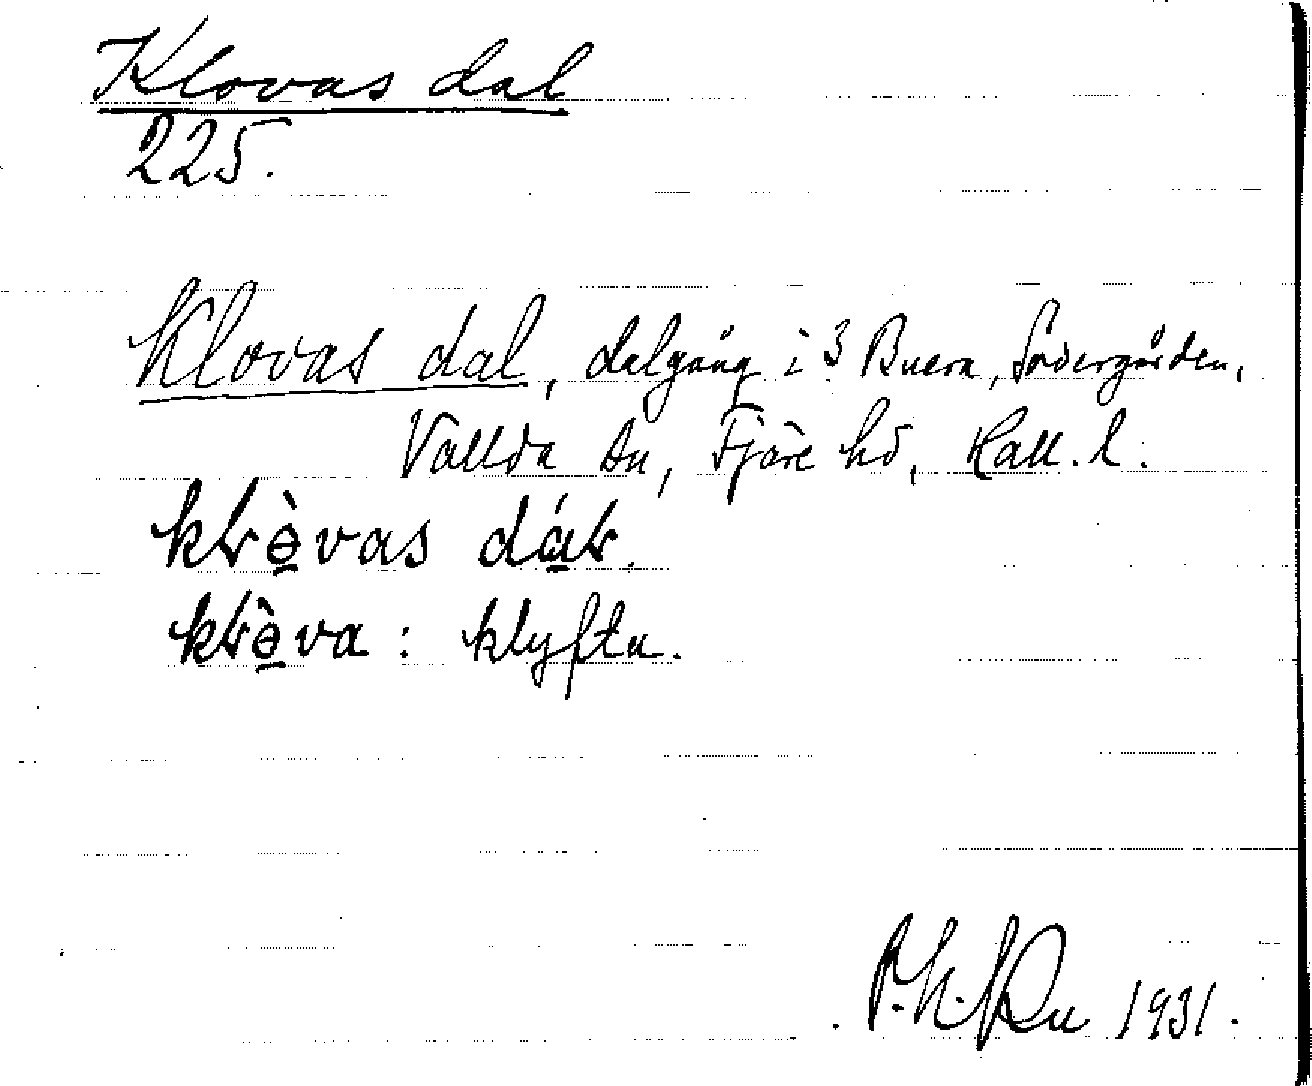 Klovas dal
225.
Klovas dal, dalgång i 3 Buera, Södergården,
Vallda sn, Fjäre hd, Hall. l.
kɫə̱̀vas dá̱ɫ.
kɫə̱̀va: klyfta.
1931.